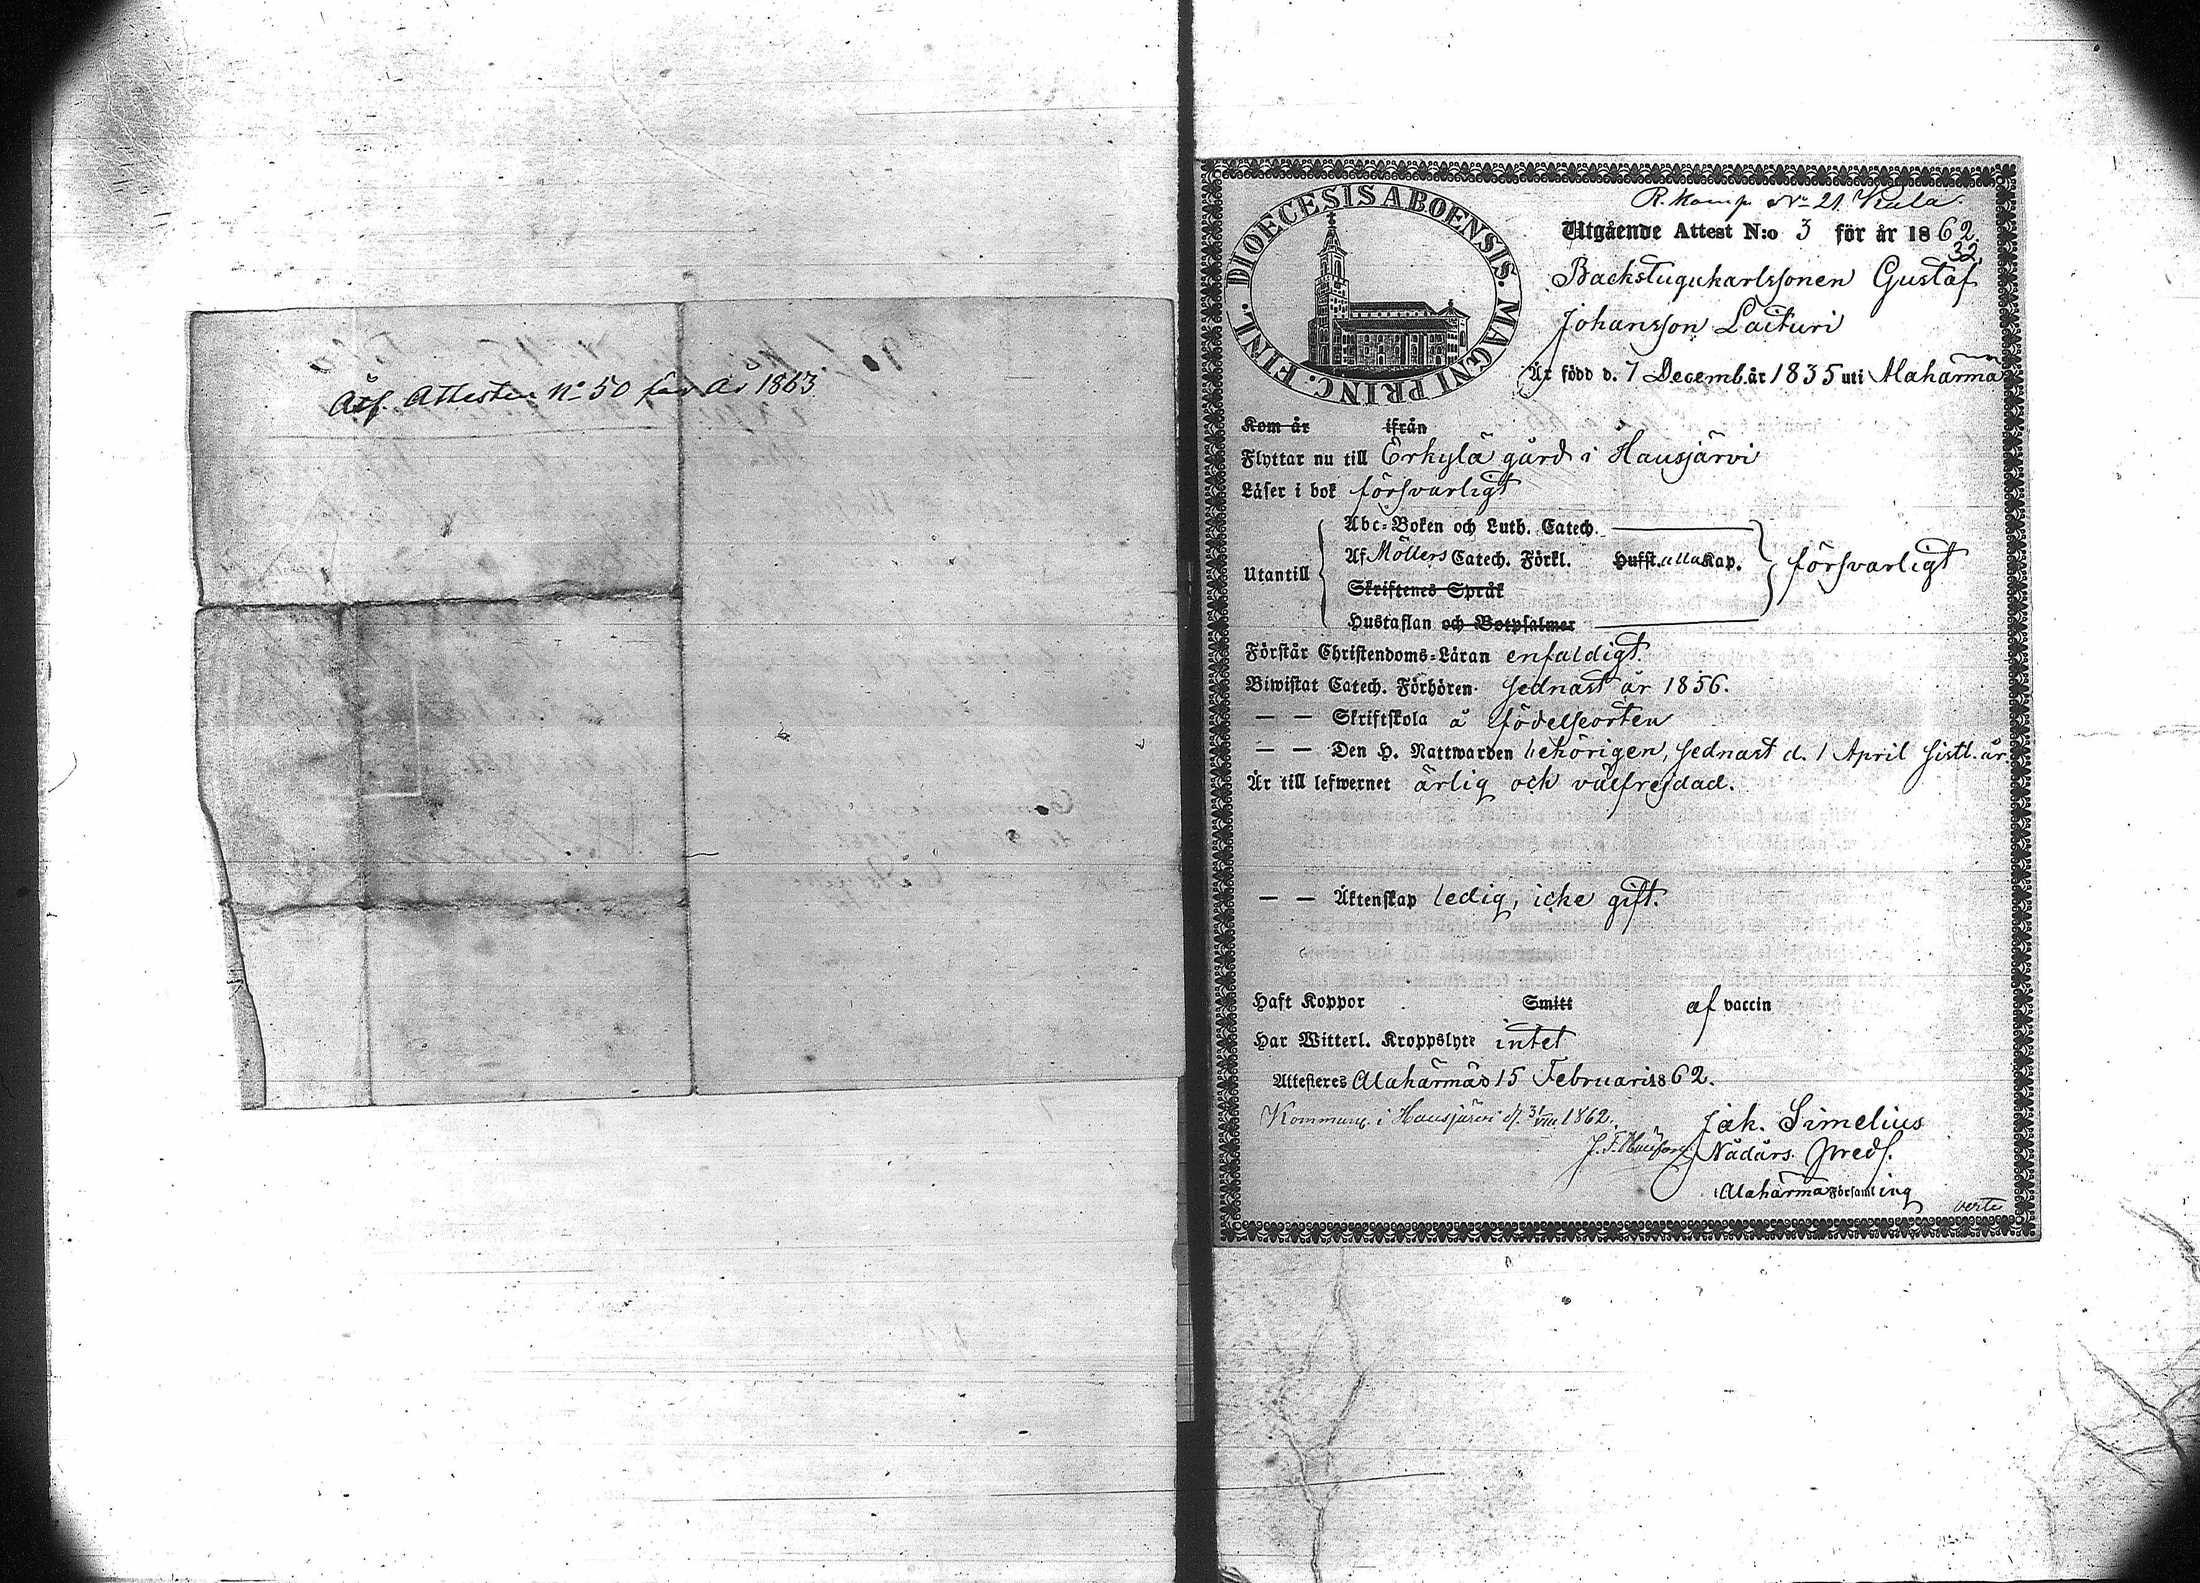 Attesten No 50 för år 1863.
DIOECESIS ABOENSIS. MAGNI PRINC. FINL.
R. komp No 21 Kula
Utgående Attest N:o 3 för år 1862.
32.
Backstugukarlssonen Gustaf
Johansson Laituri
Är född d. 7 Decemb. år 1835 uti Alahärmä
Kom år ifrån
Flyttar nu till Erkylä gård i Hausjärvi
Läser i bok försvarligt
Abc-Boken och Luth. Catech.
Af Möllers Catech. Förkl. Hufst. alla Kap. försvarligt
Utantill
Skriftenes Språk
Hustaflan och Botpsalmer
Förstår Christendoms-Läran enfaldigt.
Biwistat Catech. Förhören sednast år 1856.
— — Skriftskola å födelseorten
— — Den H. Nattwarden behörigen, sednast d. 1 April sistl. år.
Är till lefwernet ärlig och välfrejdad.
— — Äktenskap ledig, icke gift.
Haft Koppor Smitt af vaccin
Har Witterl. Kroppslyte intet
Attesteres Alahärmä d 15 Februari 1862.
i Hausjärvi d. 31/VIII 1862.
Jak. Simelius
J. F.
Nådårs Pred.
i Alahärmä Församling
verte